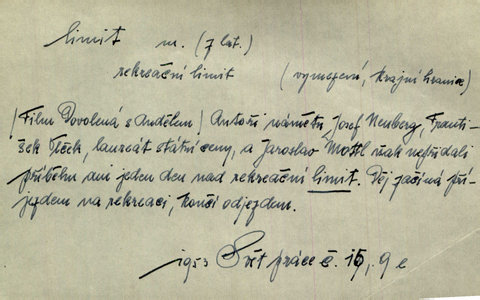 limit m. (z lat.)
rekreační limit (vymezení, krajní hranice)
(Film Dovolená s Andělem) Autoři námětu, Josef Neuberg, Franti-
šek Vlček, laureát státní ceny, a Jaroslav Mottl však nepřidali
příběhu ani jeden den nad rekreační limit. Děj začíná pří-
jezdem na rekreaci, končí odjezdem.
1953 Svět práce č. 15, 9 c